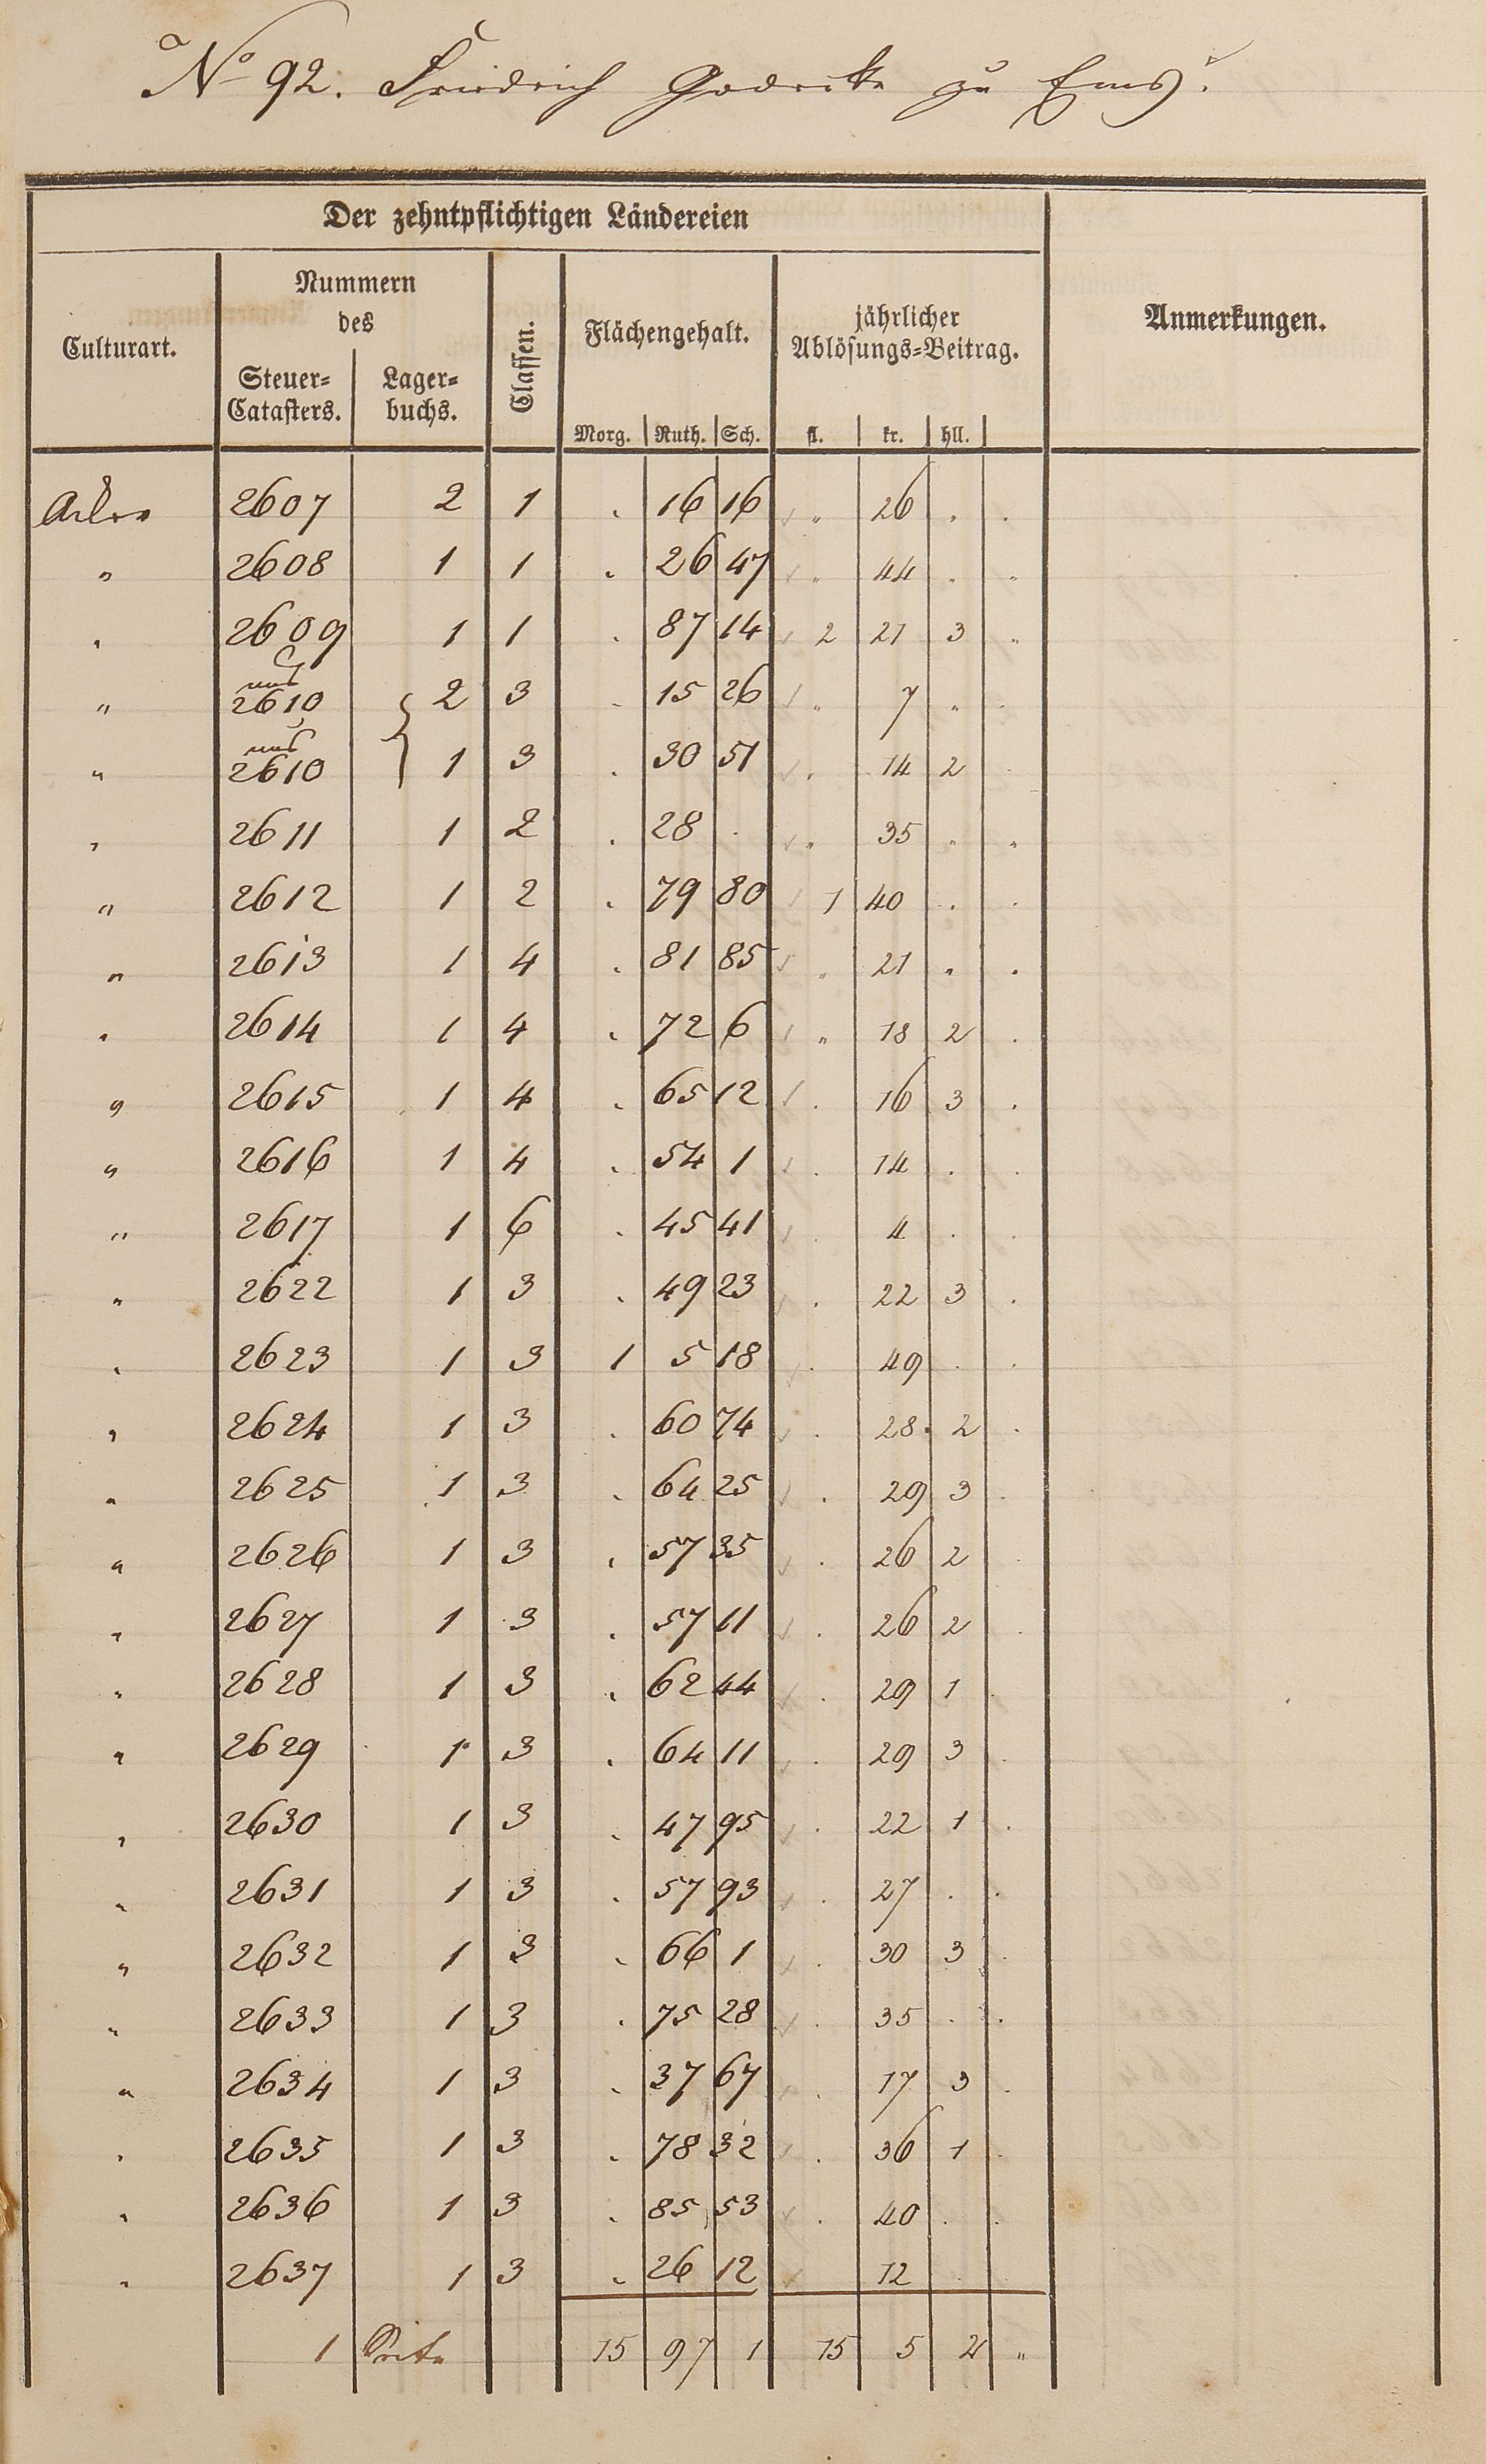 No 92. Friedrich Goedecke zu Ems.
Der zehntpflichtigen Ländereien
Culturart.
Nummern
des
Steuer=
Catasters.
Lager=
buchs.
Classen.
Flächengehalt.
Morg. Ruth. Sch.
jährlicher
Ablösungs=Beitrag.
fl. kr. hll.
Anmerkungen.
Acker 2607 2 1 . 16 16 " 26 . .
" 2608 1 1 . 26 47 " 44 . "
" 2609 1 1 . 87 14 2 21 3 "
" aus 2610 2 3 . 15 26 " 7 " .
" aus 2610 1 3 . 30 51 . 14 2 .
" 2611 1 2 . 28 . " 35 " "
" 2612 1 2 . 79 80 1 40 . .
" 2613 1 4 . 81 85 " 21 . .
" 2614 1 4 . 72 6 " 18 2 .
" 2615 1 4 . 65 12 . 16 3 .
" 2616 1 4 . 54 1 . 14 . .
" 2617 1 6 . 45 41 . 4 . .
" 2622 1 3 . 49 23 . 22 3 .
" 2623 1 3 1 5 18 . 49 . .
" 2624 1 3 . 60 74 . 28 2 .
" 2625 1 3 . 64 25 . 29 3 .
" 2626 1 3 . 57 35 . 26 2 .
" 2627 1 3 . 57 11 . 26 2 .
" 2628 1 3 . 62 44 . 29 1 .
" 2629 1 3 . 64 11 . 29 3 .
" 2630 1 3 . 47 95 . 22 1 .
" 2631 1 3 . 57 93 . 27 . .
" 2632 1 3 . 66 1 . 30 3 .
" 2633 1 3 . 75 28 . 35 . .
" 2634 1 3 . 37 67 . 17 3 .
" 2635 1 3 . 78 32 . 36 1 .
" 2636 1 3 . 85 53 . 40 . .
" 2637 1 3 . 26 12 12 .
1 Seite 15 97 1 15 5 2 "